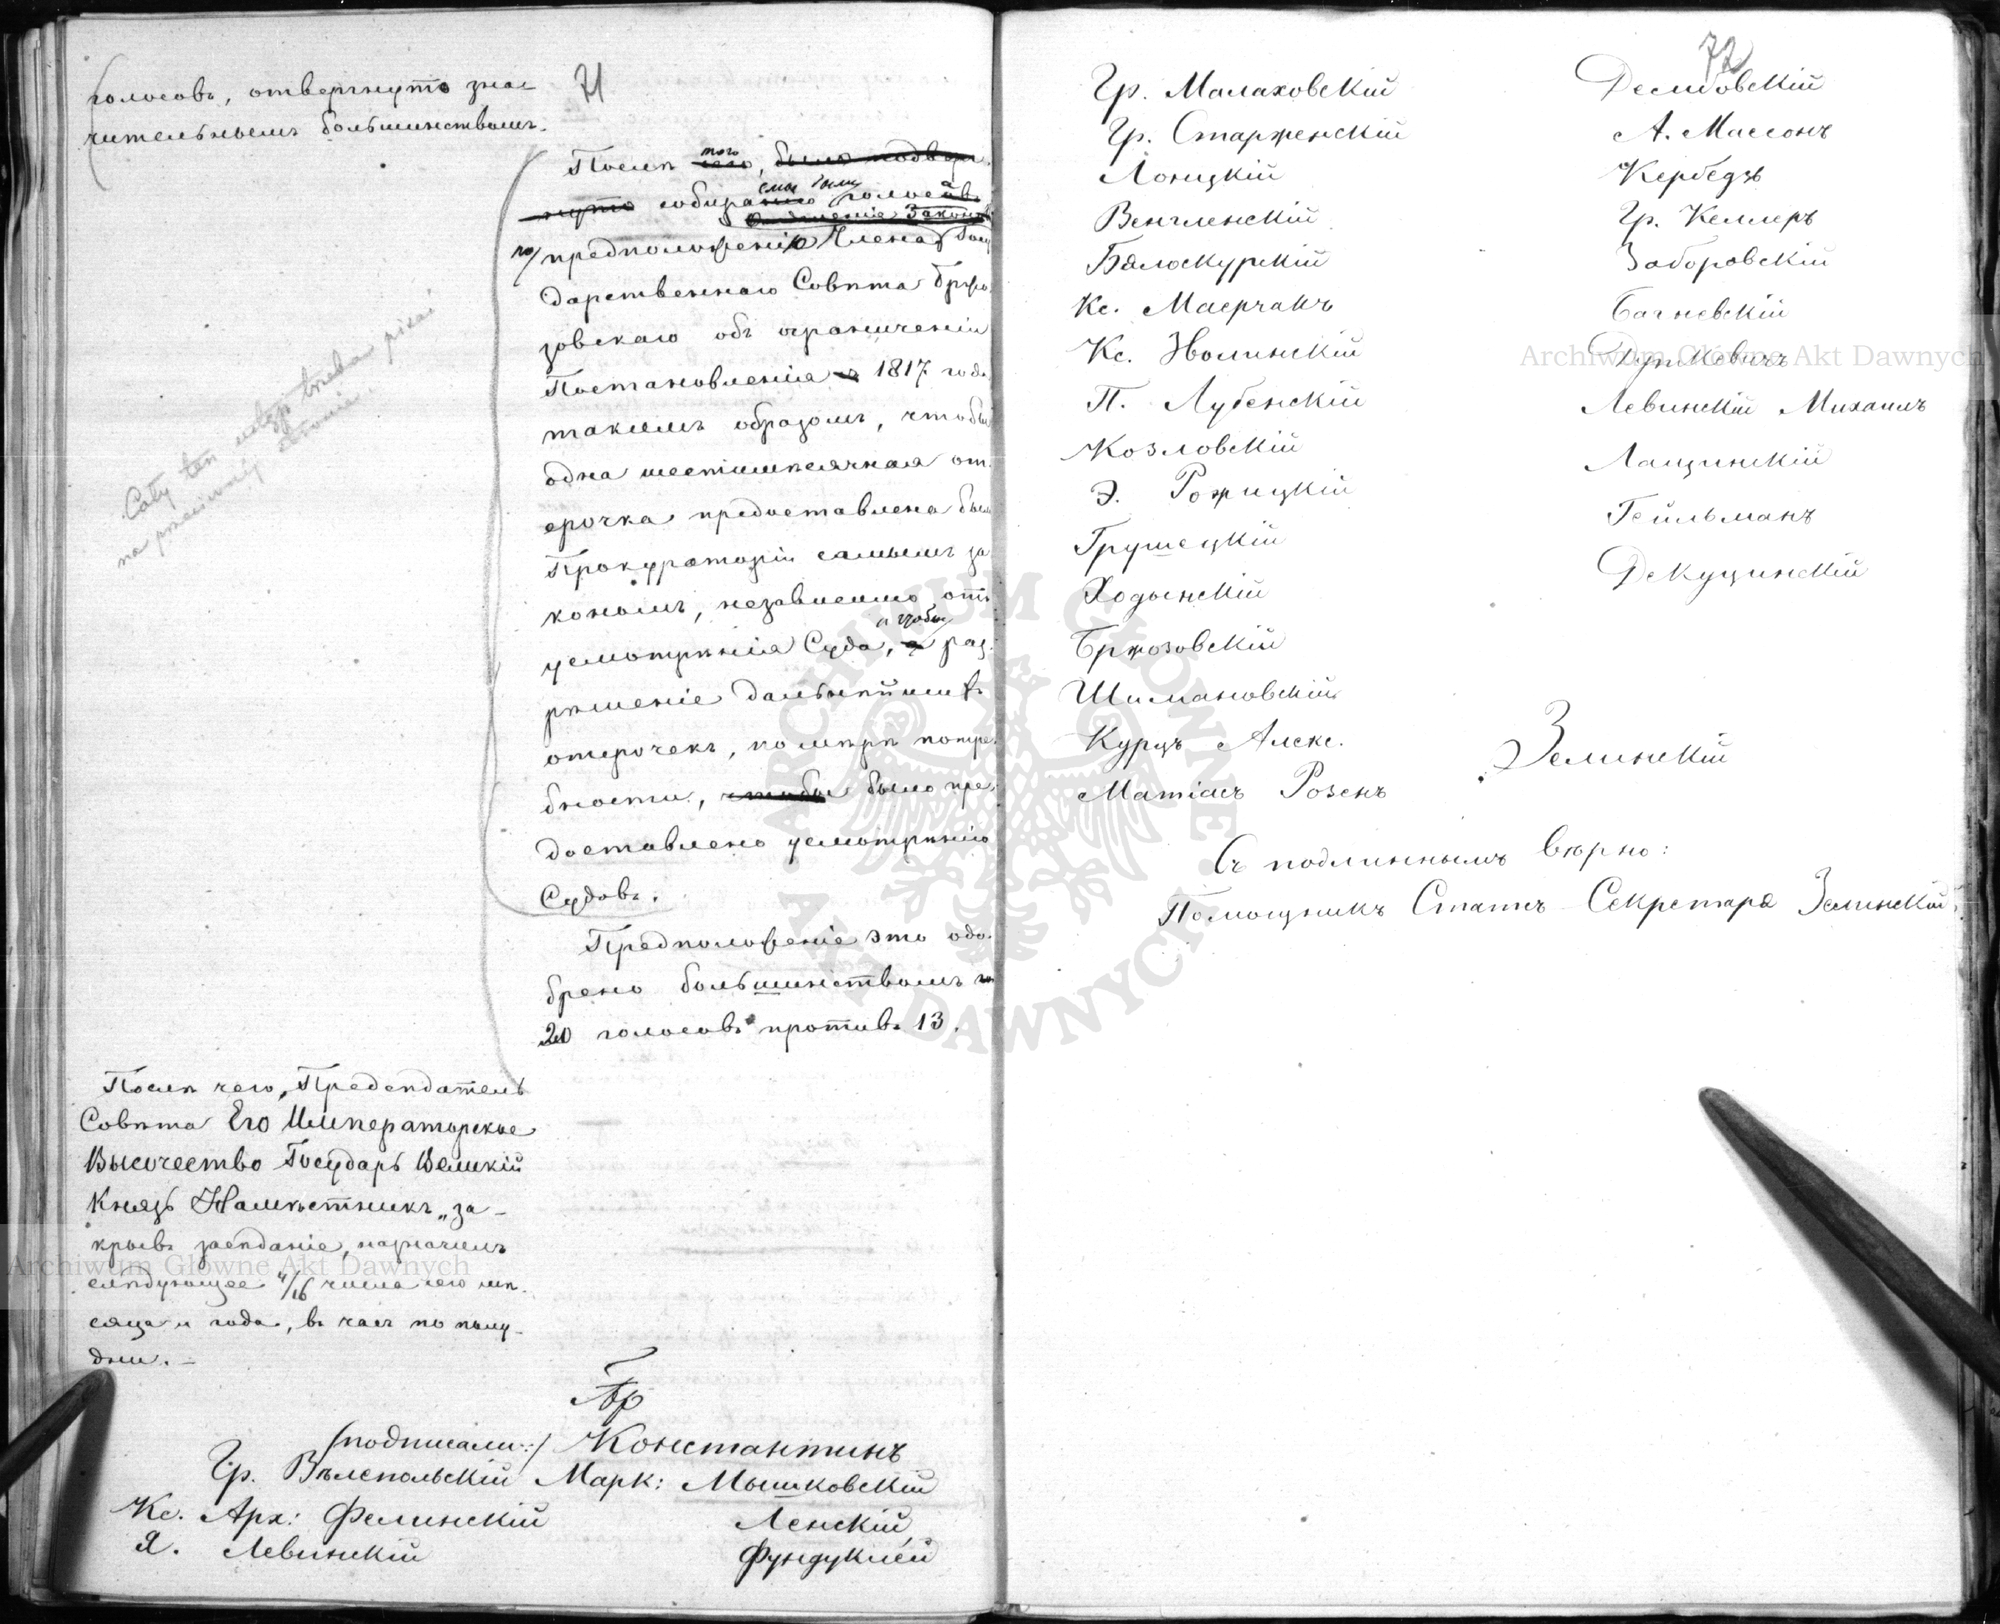 71
голосовъ, отвергнуто зна-
чительнымъ большинствомъ.
Послѣ того, было подверг-
нуто собираемы были голоса
по предположенію Члена Госу
дарственнаго Совѣта Бржо
зовскаго объ ограниченіи
Постановленія 1817 года
такимъ образомъ, чтобы
одна шестимѣсячная от
срочка предоставлена была
Прокураторіи самымъ за
кономъ, независимо отъ
усмотрѣнія Суда, и чтобы раз
рѣшеніе дальнѣйшихъ
отсрочекъ, по мѣрѣ потре
бности, чтобы было пре
доставлено усмотрѣнію
Судовъ.
Предположеніе это одо
брено большинствомъ
20 голосовъ противъ 13.
Cały ten ustęp trzeba pisać
na przeciwnéj stronie.
Послѣ чего, Предсѣдатель
Совѣта Его Императорское
Высочество Государь Великій
Князь Намѣстникъ, за-
крывъ засѣданіе, назначилъ
слѣдующее 4/16 числа сего мѣ-
сяца и года, въ часъ по полу-
дни. –
(подписали:) Константинъ
Гр. Вѣлепольскій Марк: Мышковскій
Кс. Арх: Фелинскій Ленскій
Я. Левинскій Фундуклей
72
Гр. Малаховскій
Гр. Старженскій
Лоницкій
Венгленскій
Бялоскурскій
Кс. Маерчакъ
Кс. Зволинскій
П. Лубенскій
Козловскій
Э. Рожицкій
Грушецкій
Ходынскій
Бржозовскій
Шимановскій
Курцъ Алекс.
Матіасъ Розенъ
Дембовскій
А. Массонъ
Кербедзъ
Гр. Келлеръ
Заборовскій
Багневскій
Дуткевичъ
Левинскій Михаилъ
Лащинскій
Гейльманъ
Декуцинскій
Зелинскій
Съ подлиннымъ вѣрно:
Помощникъ Статсъ-Секретаря Зелинскій
Archiwum Główne Akt Dawnych
Archiwum Główne Akt Dawnych
ARCHIWUM GŁÓWNE AKT DAWNYCH